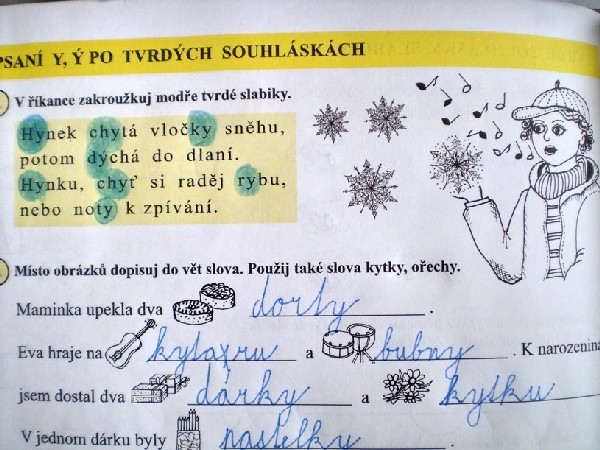 PSANÍ Y, Ý PO TVRDÝCH SOUHLÁSKÁCH
V říkance zakroužkuj modře tvrdé slabiky.
Hynek chytá vločky sněhu,
potom dýchá do dlaní.
Hynku, chyť si raděj rybu,
nebo noty k zpívání.
Místo obrázků dopisuj do vět slova. Použij také slova kytky, ořechy.
Maminka upekla dva dorty.
Eva hraje na kytaru a bubny. K narozenina
jsem dostal dva dárky a kytku
V jednom dárku byly pastelky